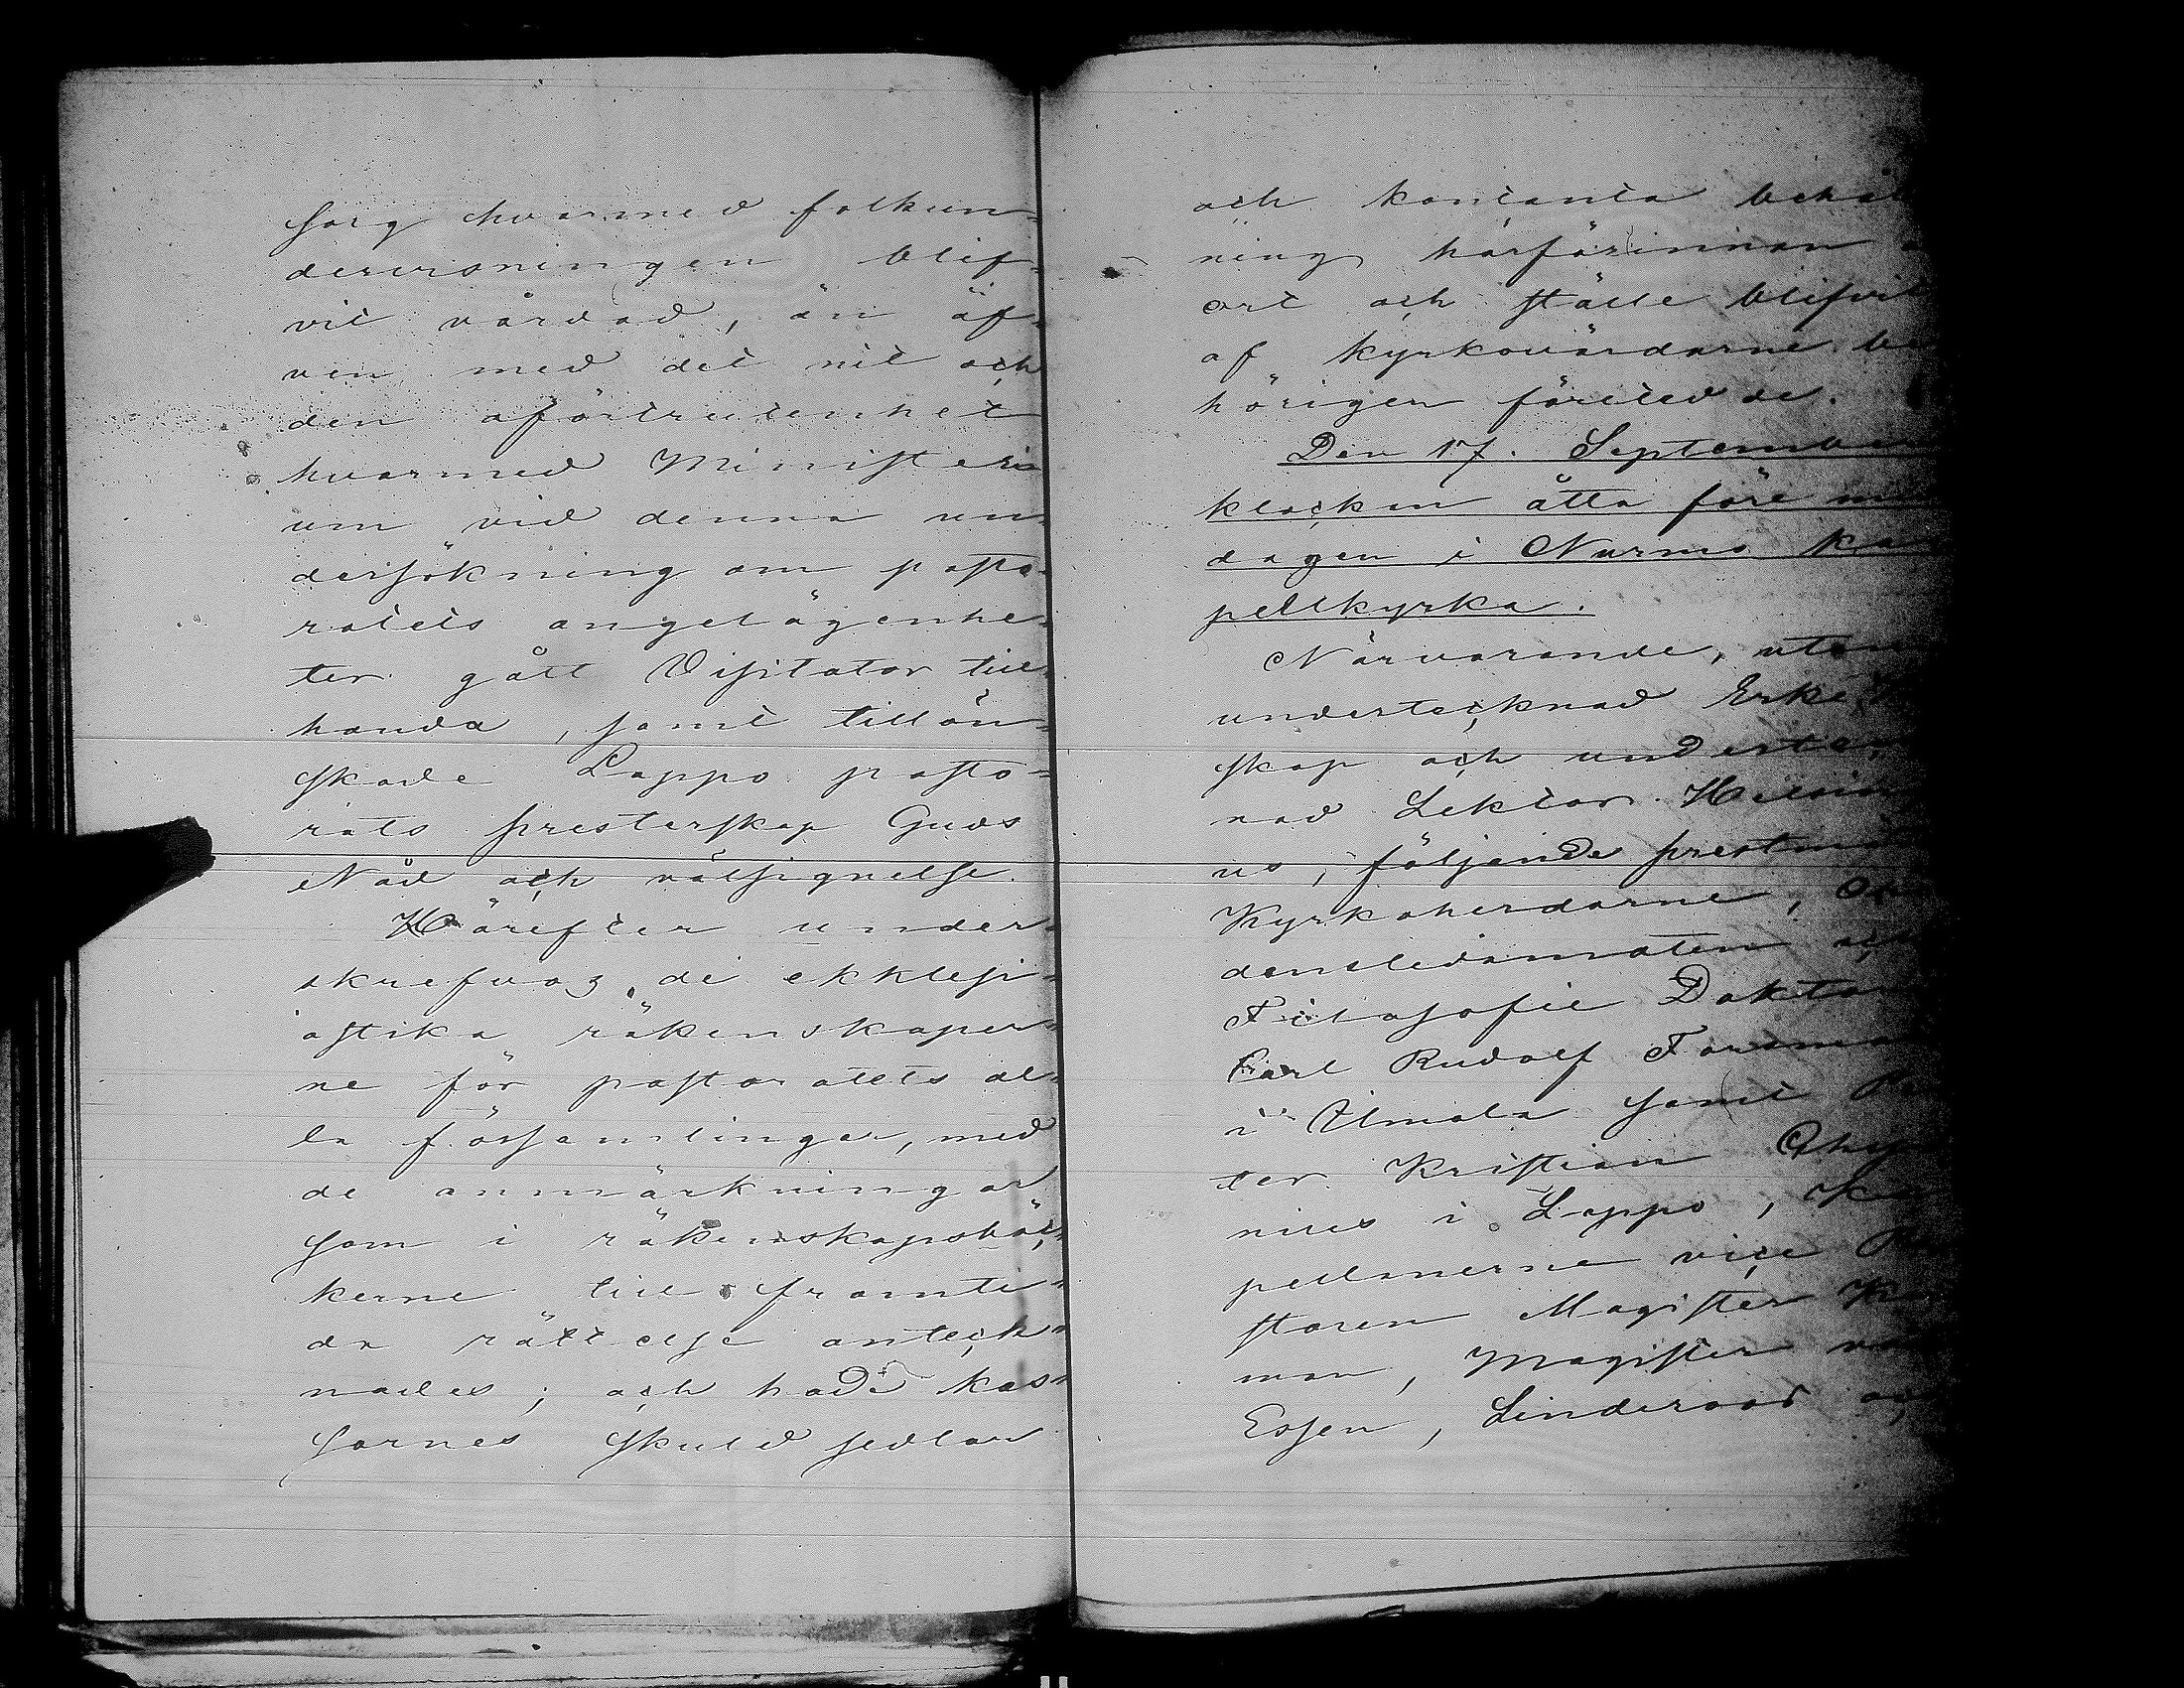 sorg hvarmed folkun-
dervisningen blif-
vit vårdad, än äf-
ven med det nit och
den oförtrutenhet
hvarmed Ministeri-
um vid denna un-
dersökning om pasto-
ratets angelägenhe-
ter gått Visitator till
handa, samt tillön-
skade Lappo pasto-
rats presterskap Guds
Nåd och välsignelse.
Härefter under-
skrefvos de ekklesi-
astika räkenskaper-
ne för pastoratets al-
la församlingar, med
de anmärkningar
som i räkenskapsböc-
kerne till framti-
da rättelse anteck-
nades; och hade kas-
sornes skuldsedlar
och kontanta behåll
ning härförinnan å
ort och ställe blifvit
af kyrkovärdarne be
hörigen företedde.
Den 17. September
klockan åtta före mid
dagen i Nurmo ka
pellkyrka.
Närvarande, utom
undertecknad Erkebi
skop och underteck
nad Lektor
us, följande prestmän
Kyrkoherdarne, Or
densledamoten och
Filosofie Doktorn
Carl Rudolf Forsman
i Ilmola samt Pas
ter Kristian
nius i Lappo, Ka
pellanerne vice Pa
storen Magister
man, Magister von
Essen, Linderoos och